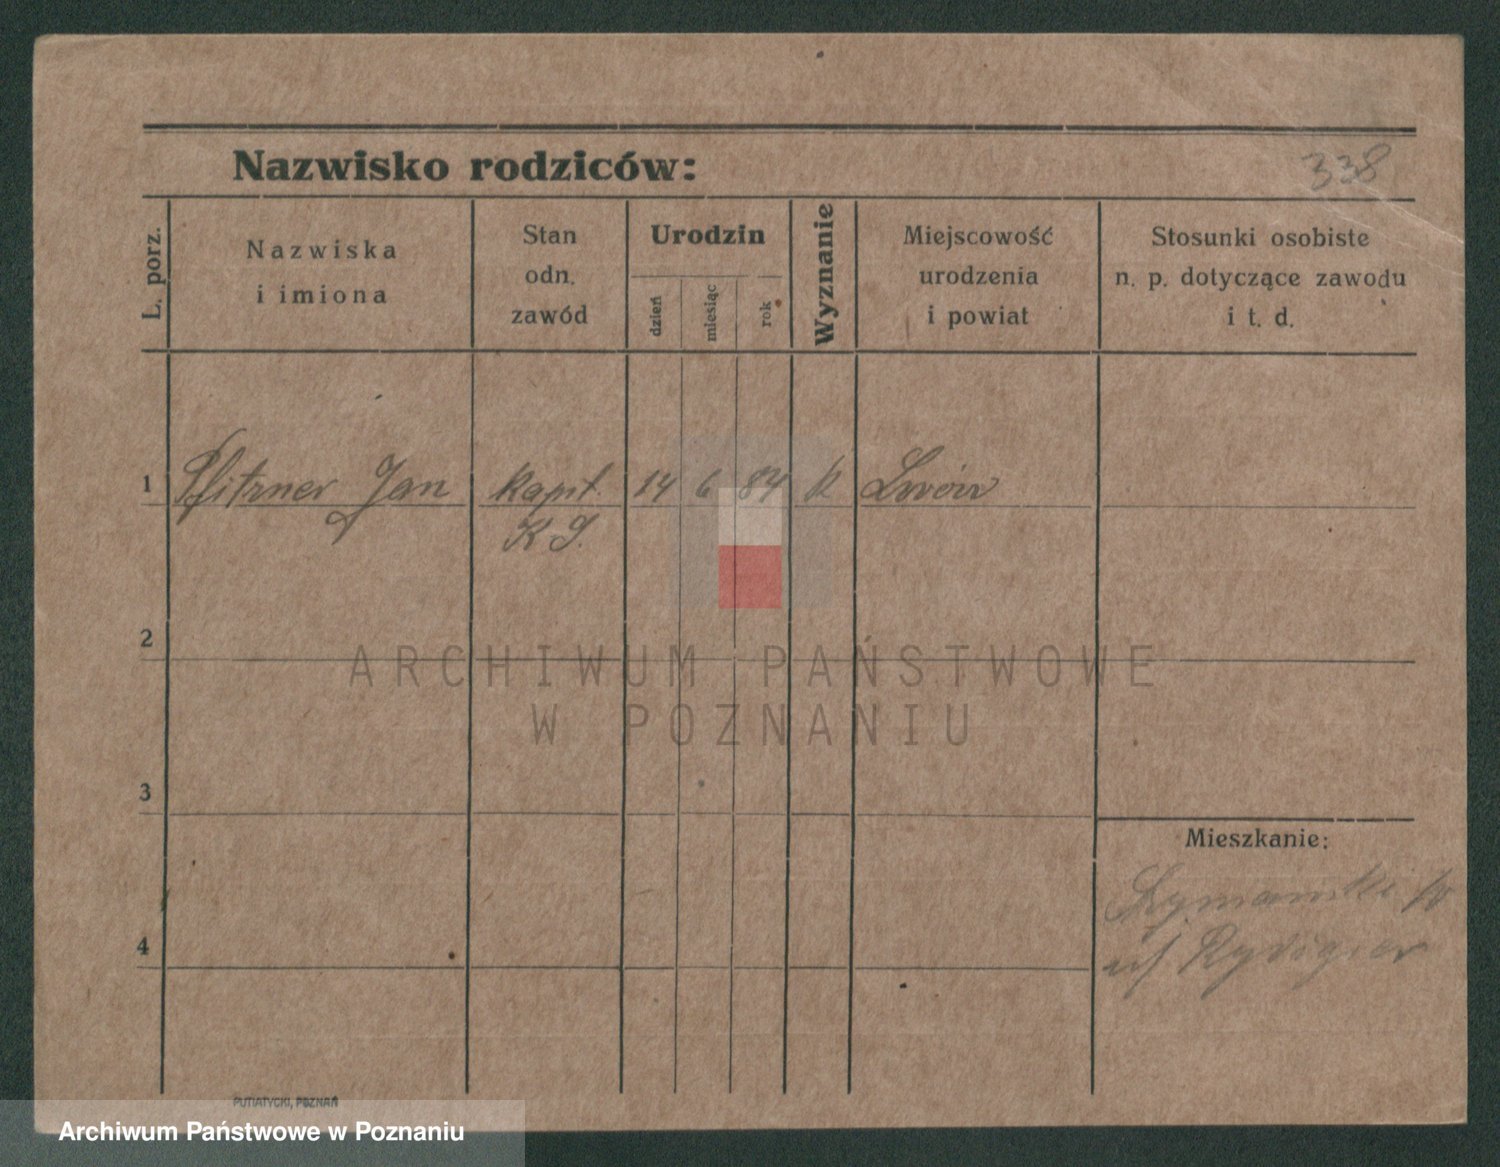 Nazwisko rodziców:
338
L. porz.
Nazwiska
i imiona
Stan
odn.
zawód
Urodzin
dzień
miesiąc
rok
Wyznanie
Miejscowość
urodzenia
i powiat
Stosunki osobiste
n. p. dotyczące zawodu
i t. d.
1 Pfitzner Jan kapit. 14 6 84 k Lwów
K S.
2
ARCHIWUM PAŃSTWOWE
W POZNANIU
3
Mieszkanie:
4
Rydigier
PUTIATYCKI, POZNAŃ
Archiwum Państwowe w Poznaniu